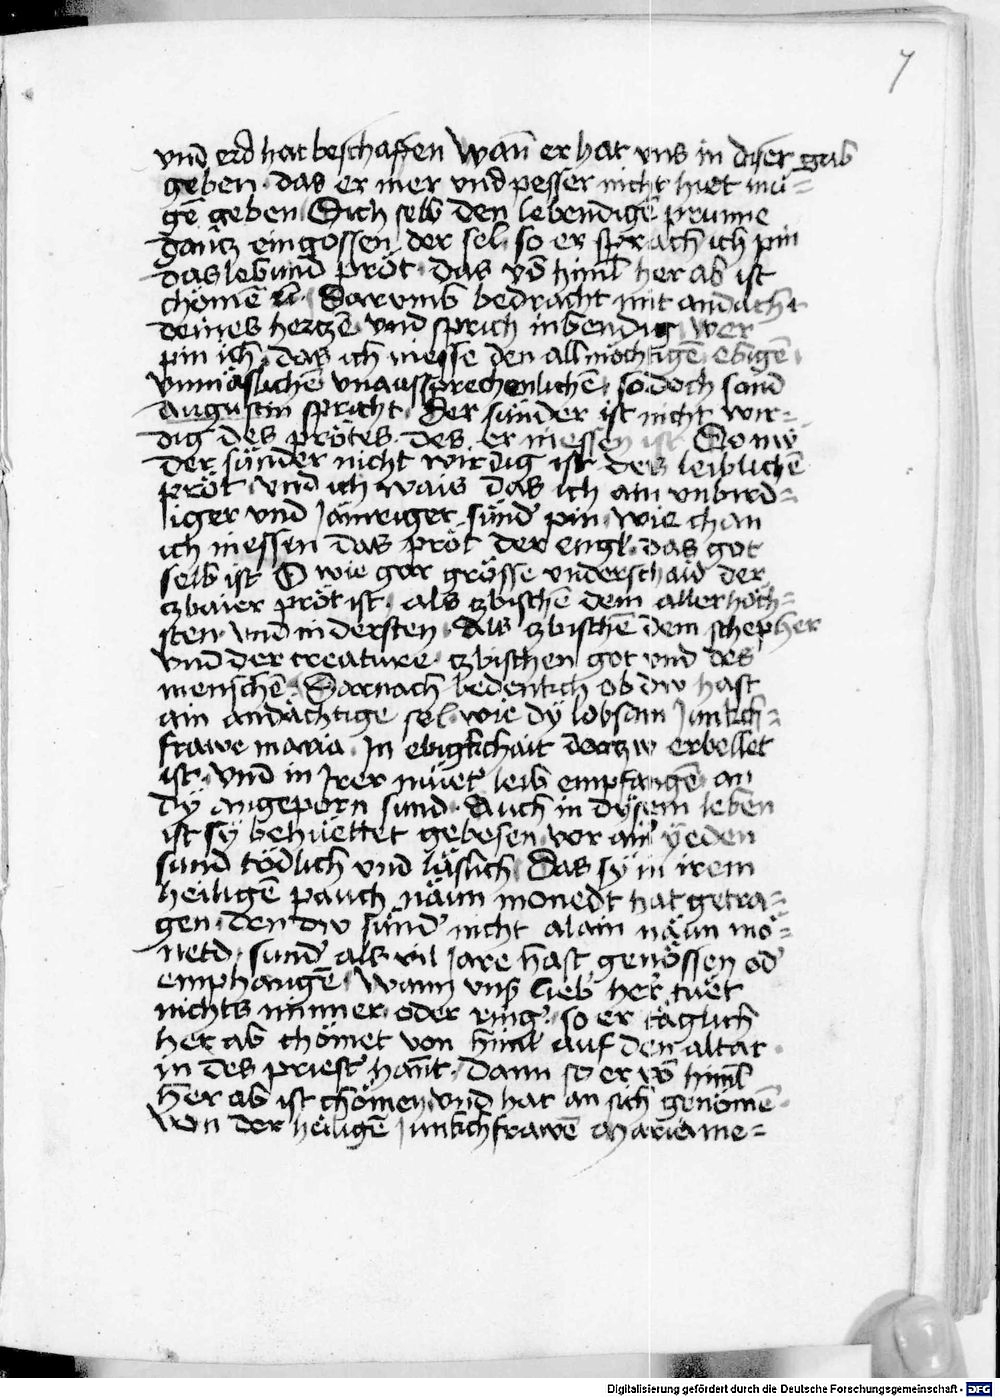 7
vnd erd hat beschaffen Wan̄ er hat vns in diser gab
geben · das er mer vnd pesser nicht hiet mü-
gē geben Sich selb den lebendigē prunne
gantz eingossen der sel · so er sprach ich pin
das lebund pröt · das vō himl her ab ist
chömē Darumb bedracht mit andacht
deines hertzē vnd sprich inbendig wer
pin ich das ich niesse den allmöchtigē ebigē
vnmäslichē vnaussprechenlichē so doch sand
augustin spricht Der sünder ist nicht wir-
dig des prötes · des er niessen ist So nw
der sünder nicht wirdig ist des leiblichē
pröt vnd ich wais das ich ain vnbird-
iger vnd Jämriger sünd' pin wie chan
ich niessen das pröt der engl · das got
selb ist O wie gar grösse vnderschaid der
czbaier pröt ist · als czbischē dem allerhöch-
sten vnd indersten · Als czbischē dem schepher
vnd der creature · czbischen got vnd des
menschē · Darnach bedenkch ob dw hast
ain andächtige sel · wie dy lobsam Junkch-
frawe maria · In ebigkchait dartzw erbellet
ist · vnd in Irer müet' leib empfangē an
dÿ angeporn sund · Auch in dÿsem leben
ist sÿ behüettet gebesen vor aim ÿeden
sund tödlich vnd läslich Das sÿ in irem
heiligē pauch näun monedt hat getra-
gen · den dw sünd' nicht alain näun mö-
netd · sund' als vil Jare hast genössen od'
emphangē Wann vns' lieb her tüet
nichts minner oder ring' · so er täglich
her ab chömet von himl auf den altar
in des priest' hant · dann so er vō himl
her ab ist chömen vnd hat an sich genömē
von der heiligē Junkchfrawē Maria me-
Digitalisierung gefördert durch die Deutsche Forschungsgemeinschaft - DFG